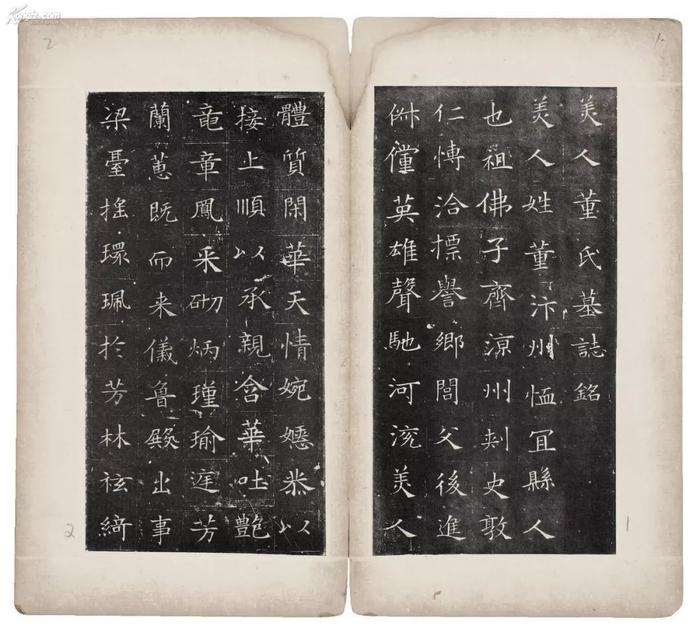 美人董氏墓誌銘
美人姓董汴州恤冝縣人
也祖佛子齊涼州刾史敦
仁愽洽摽譽鄉閭父後進
俶儻英雄聲馳河渷美人
體質閑華天情婉嫕恭以
接上順以承親含華吐艷
竜章鳳采砌炳瑾瑜庭芳
蘭蕙既而来儀魯殿出事
梁臺搖環珮於芳林袨綺
1
2